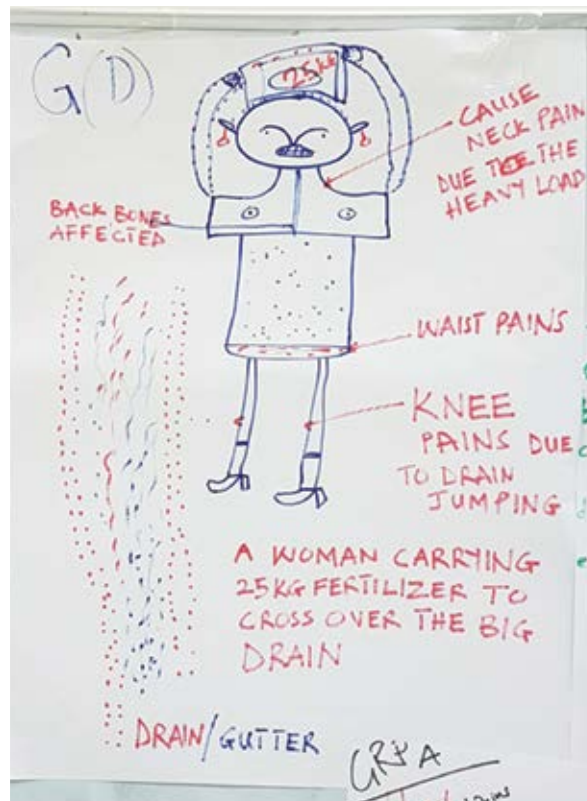 G(D)
25kg
CAUSE
NECK PAIN
DUE TOE THE
HEAVY LOAD
BACK BONES
AFFECTED
WAIST PAINS
KNEE
PAINS DUE
TO DRAIN
JUMPING
A WOMAN CARRYING
25KG FERTILIZER TO
CROSS OVER THE BIG
DRAIN
DRAIN/GUTTER